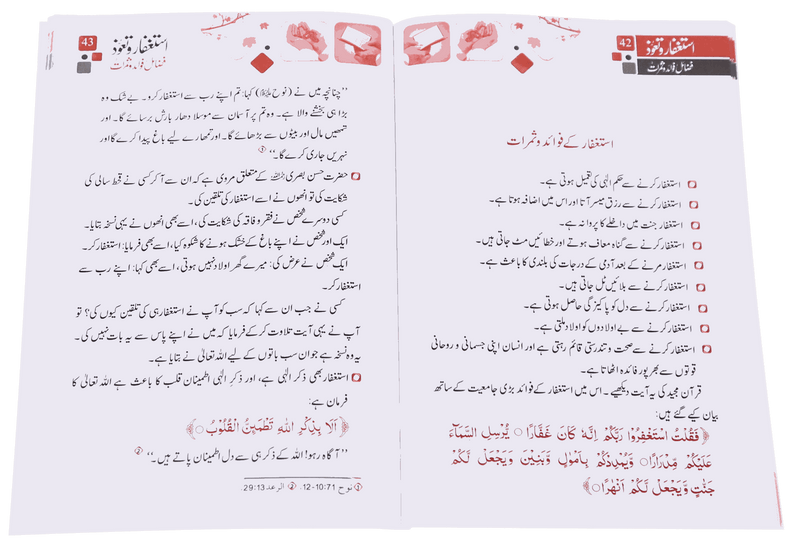 42
استغفار و تعوّذ
فضائل فوائد و ثمرات
استغفار کے فوائد و ثمرات
استغفار کرنے سے حکم الٰہی کی تعمیل ہوتی ہے۔
استغفار کرنے سے رزق میسر آتا اور اس میں اضافہ ہوتا ہے۔
استغفار جنت میں داخلے کا پروانہ ہے۔
استغفار کرنے سے گناہ معاف ہوتے اور خطائیں مٹ جاتی ہیں۔
استغفار مرنے کے بعد آدمی کے درجات کی بلندی کا باعث ہے۔
استغفار کرنے سے بلائیں ٹل جاتی ہیں۔
استغفار کرنے سے دل کو پاکیزگی حاصل ہوتی ہے۔
استغفار کرنے سے بے اولادوں کو اولاد ملتی ہے۔
استغفار کرنے سے صحت و تندرستی قائم رہتی ہے اور انسان اپنی جسمانی و روحانی
قوتوں سے بھرپور فائدہ اٹھاتا ہے۔
قرآن مجید کی یہ آیت دیکھیے۔ اس میں استغفار کے فوائد بڑی جامعیت کے ساتھ
بیان کیے گئے ہیں:
﴿ فَقُلْتُ اسْتَغْفِرُوْا رَبَّكُمْ اِنَّهٗ كَانَ غَفَّارًا ○ يُّرْسِلِ السَّمَآءَ
عَلَيْكُمْ مِّدْرَارًا ○ وَّيُمْدِدْكُمْ بِاَمْوَالٍ وَّبَنِيْنَ وَيَجْعَلْ لَّكُمْ
جَنّٰتٍ وَّيَجْعَلْ لَّكُمْ اَنْهٰرًا ○ ﴾
43
استغفار و تعوّذ
فضائل فوائد و ثمرات
’’چنانچہ میں نے (نوح علیہ السلام) کہا: تم اپنے رب سے استغفار کرو۔ بے شک وہ
بڑا ہی بخشنے والا ہے۔ وہ تم پر آسمان سے موسلا دھار بارش برسائے گا۔ اور
تمھیں مال اور بیٹوں سے بڑھائے گا۔ اور تمھارے لیے باغ پیدا کرے گا اور
نہریں جاری کرے گا۔‘‘ ❶
حضرت حسن بصری رحمہ اللہ کے متعلق مروی ہے کہ ان سے آ کر کسی نے قحط سالی کی
شکایت کی تو انھوں نے اسے استغفار کی تلقین کی۔
کسی دوسرے شخص نے فقر و فاقہ کی شکایت کی، اسے بھی انھوں نے یہی نسخہ بتایا۔
ایک اور شخص نے اپنے باغ کے خشک ہونے کا شکوہ کیا، اسے بھی فرمایا: استغفار کر۔
ایک شخص نے عرض کی: میرے گھر اولاد نہیں ہوتی، اسے بھی کہا: اپنے رب سے
استغفار کر۔
کسی نے جب ان سے کہا کہ سب کو آپ نے استغفار ہی کی تلقین کیوں کی؟ تو
آپ نے یہی آیت تلاوت کر کے فرمایا کہ میں نے اپنے پاس سے یہ بات نہیں کی۔
یہ وہ نسخہ ہے جو ان سب باتوں کے لیے اللہ تعالیٰ نے بتایا ہے۔
استغفار بھی ذکر الٰہی ہے، اور ذکر الٰہی اطمینان قلب کا باعث ہے اللہ تعالیٰ کا
فرمان ہے:
﴿ اَلَا بِذِكْرِ اللّٰهِ تَطْمَىِٕنُّ الْقُلُوْبُ ○ ﴾
’’آگاہ رہو! اللہ کے ذکر ہی سے دل اطمینان پاتے ہیں۔‘‘ ❷
❶ نوح 71:10-12. ❷ الرعد 13:29.